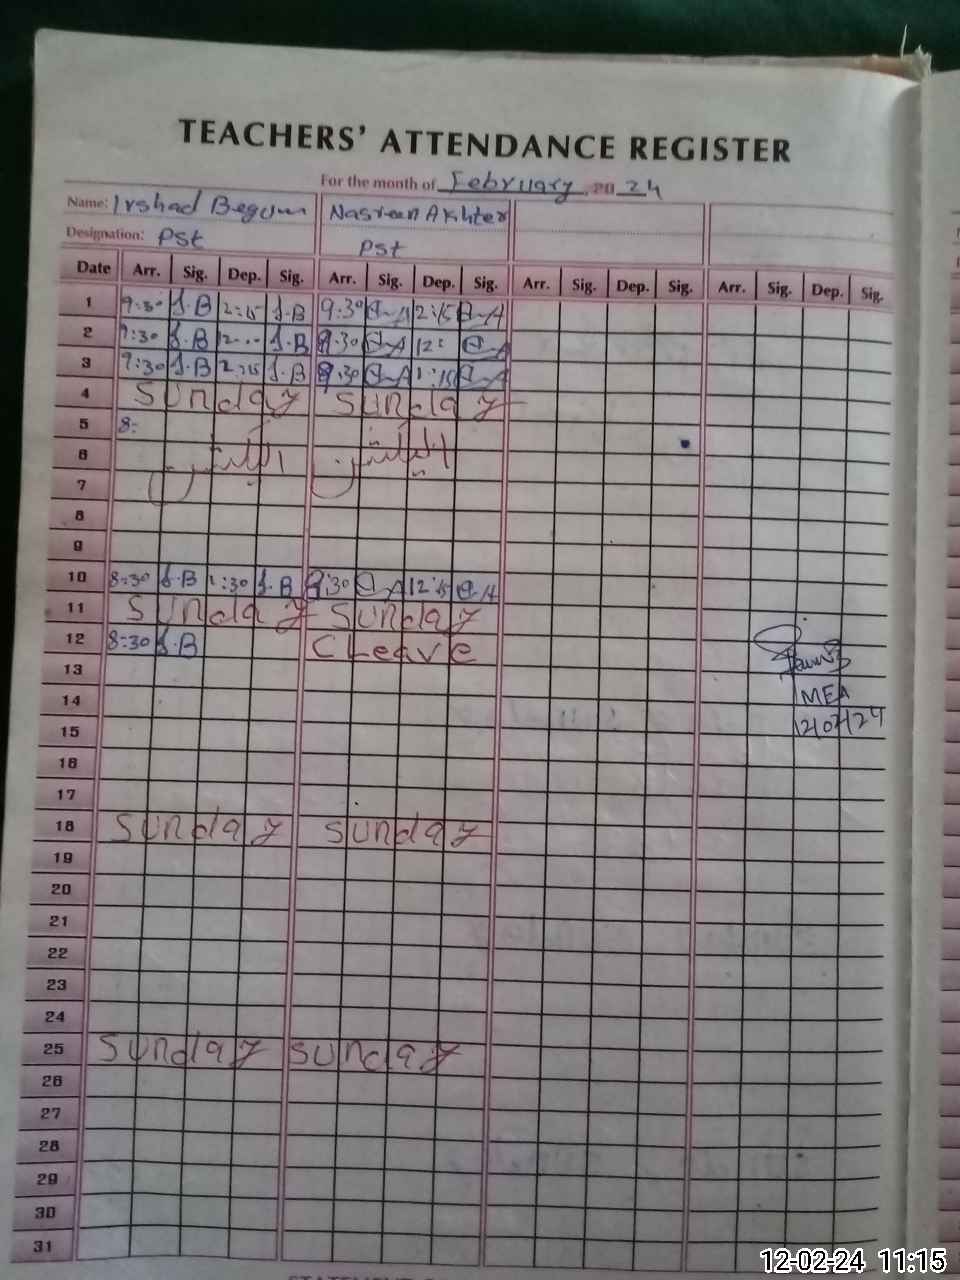 TEACHERS' ATTENDANCE REGISTER
For the month of February 2024
Name: Irshad Begum Nasreen Akhter
Designation: Pst Pst
Date Arr. Sig. Dep. Sig. Arr. Sig. Dep. Sig. Arr. Sig. Dep. Sig. Arr. Sig. Dep. Sig.
1 9:30 I.B 2:15 I.B 9:30 2:15
2 9:30 I.B 12 I.B 9:30 12:
3 9:30 I.B 2:15 I.B 8:30 1:15
4 Sunday Sunday
5 8:
6 الیکشن الیکشن
7
8
9
10 8:30 I.B 1:30 I.B 8:30 12:15
11 Sunday Sunday
12 8:30 I.B C Leave
13
14 MEA
15 12/02/24
16
17
18 Sunday Sunday
19
20
21
22
23
24
25 Sunday Sunday
26
27
28
29
30
31
12-02-24 11:15